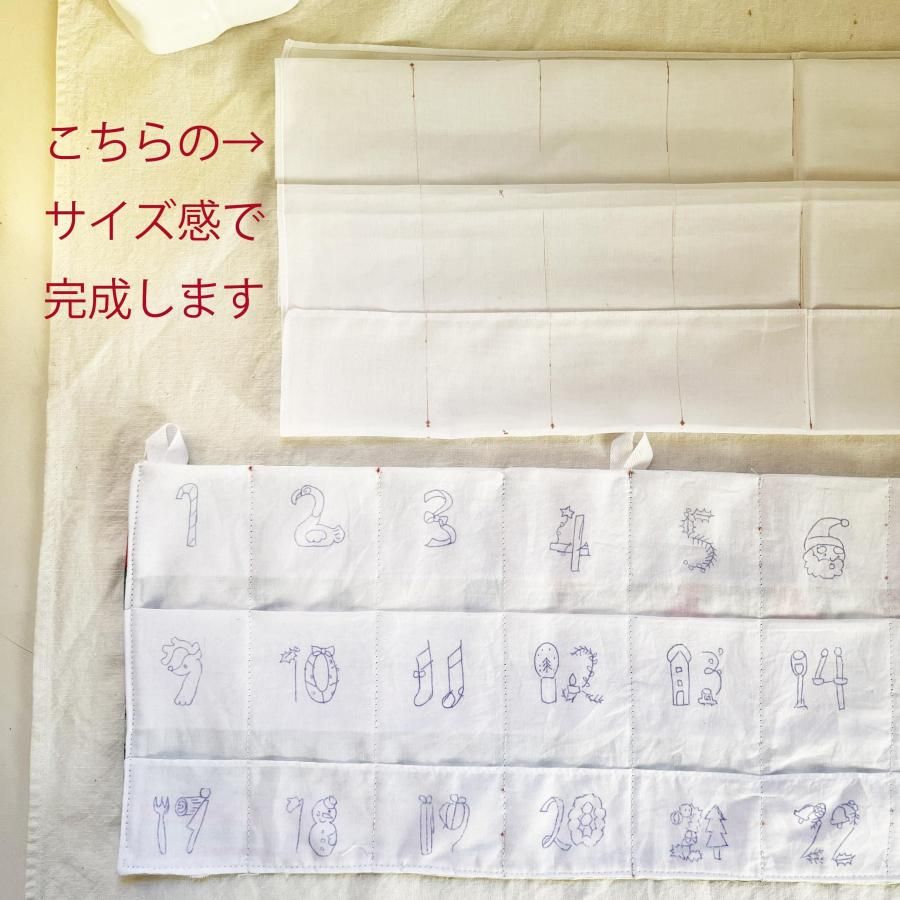 こちらの→
サイズ感で
完成します
1 2 3 4 5 6
9 10 11 12 13 14
17 18 19 20 21 22